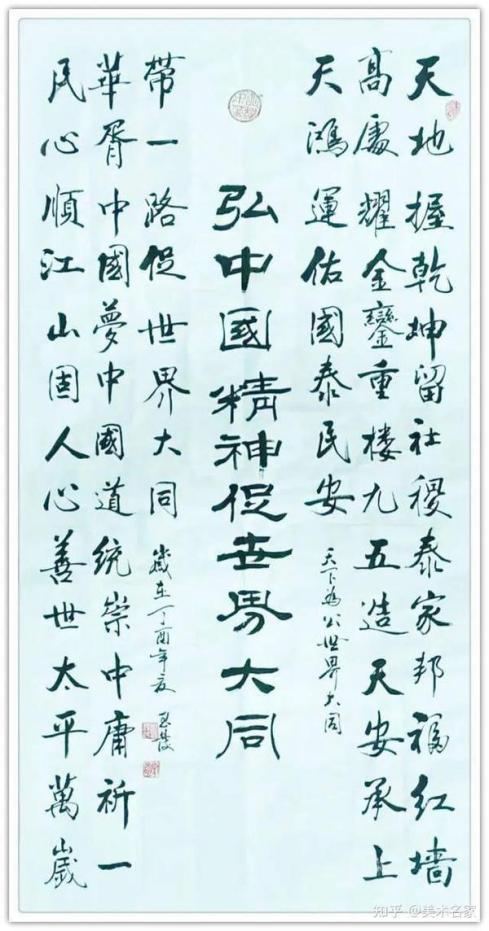 天地握乾坤留社稷泰家邦福红墙
高處耀金鑾重楼九五造天安承上
天鴻運佑國泰民安
天下為公世界大同
弘中國精神促世界大同
民心順江山固人心善世太平萬歲
華胥中國夢中國道統崇中庸祈一
帶一路促世界大同
歲在丁酉年夏
知乎 @美术名家